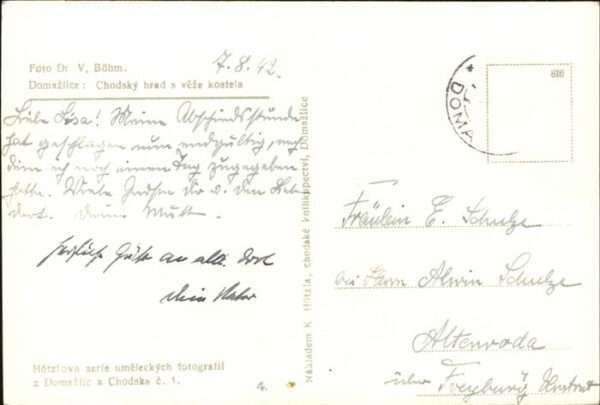 Foto Dr V. Böhm.
Domažlice: Chodský hrad s věže kostela
7.8.42.
Meine Abschiedsstunde
hat geschlagen nun endgültig,
ich noch einen Tag zugegeben
hatte. Viele
dort. Deine Mutti.
Herzliche Grüße an alle dort
Dein Vater
Hötzlova serie uměleckých fotografií
z Domažlic a Chodska č. 1.
Nákladem K. Hötzla, chodské knihkupectví, Domažlice
DOMA
Fräulein E. Schulze
bei Herrn Alwin Schulze
Altenroda
über Freyburg Unstrut